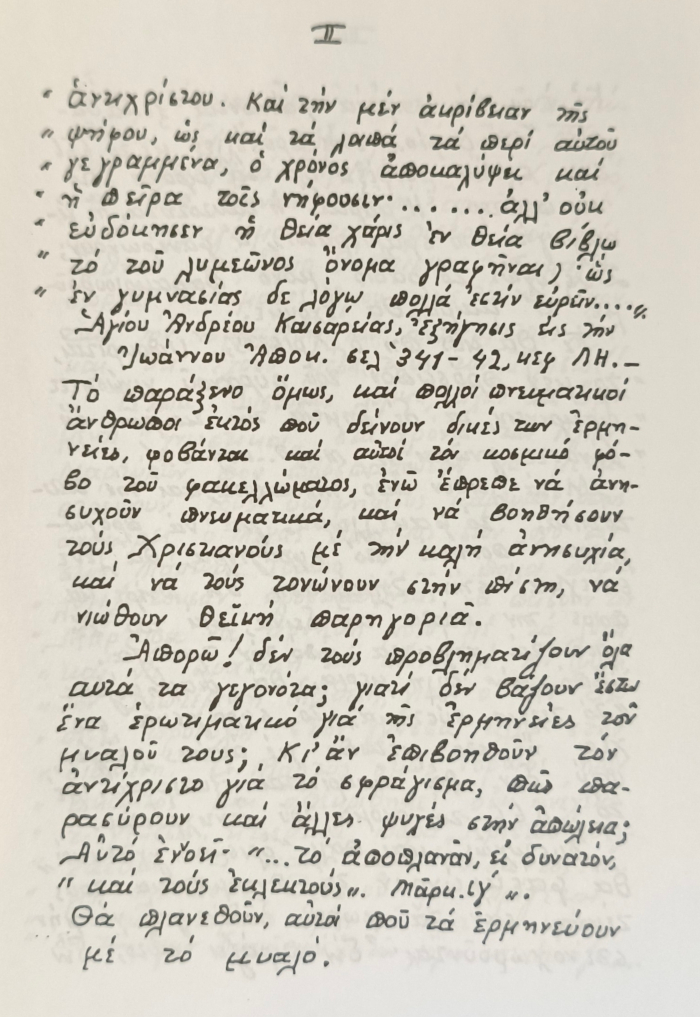 II
" ἀντιχρίστου. Καί τήν μέν ἀκρίβειαν τῆς
" ψήφου, ὡς καί τά λοιπά τά περί αὐτοῦ
" γεγραμμένα, ὁ χρόνος ἀποκαλύψει καί
" ἡ πεῖρα τοῖς νήφουσιν........ἀλλ' οὐκ
" εὐδόκησεν ἡ θεία χάρις ἐν θεία βίβλω
" τό τοῦ λυμεῶνος ὄνομα γραφῆναι, ὡς
" ἐν γυμνασίας δε λόγω πολλά ἐστίν εὑρεῖν...."
Ἁγίου Ἀνδρέου Καισαρείας, Ἐξήγησις εἰς τήν
Ἰωάννου Ἀποκ. σελ 341-42, κεφ ΛΗ.-
Τό παράξενο ὅμως, καί πολλοί πνευματικοί
ἄνθρωποι ἐκτός πού δείνουν δικές των ἑρμη-
νείες, φοβάνται καί αὐτοί τόν κοσμικό φό-
βο τοῦ φακελλώματος, ἐνῶ ἔπρεπε νά ἀνη-
συχοῦν πνευματικά, καί νά βοηθήσουν
τούς Χριστιανούς μέ τήν καλή ἀνησυχία,
καί νά τούς τονώνουν στήν πίστη, νά
νιώθουν θεϊκή παρηγοριά.
Ἀπορῶ! δέν τούς προβληματίζουν ὅλα
αυτά τα γεγονότα; γιατί δέν βάζουν ἔστω
ἕνα ἐρωτηματικό γιά τῆς ἑρμηνείες τοῦ
μυαλοῦ τους; Κι' ἄν ἐπιβοηθοῦν τόν
ἀντίχριστο γιά τό σφράγισμα, πῶς πα-
ρασύρουν καί ἄλλες ψυχές στήν ἀπώλεια;
Αὐτό ἐνοεῖ· "...τό ἀποπλανᾶν, εἰ δυνατόν,
" καί τούς ἐκλεκτούς". Μάρκ. ιγ΄ ".
Θά πλανεθοῦν, αὐτοί πού τά ἑρμηνεύουν
μέ τό μυαλό.